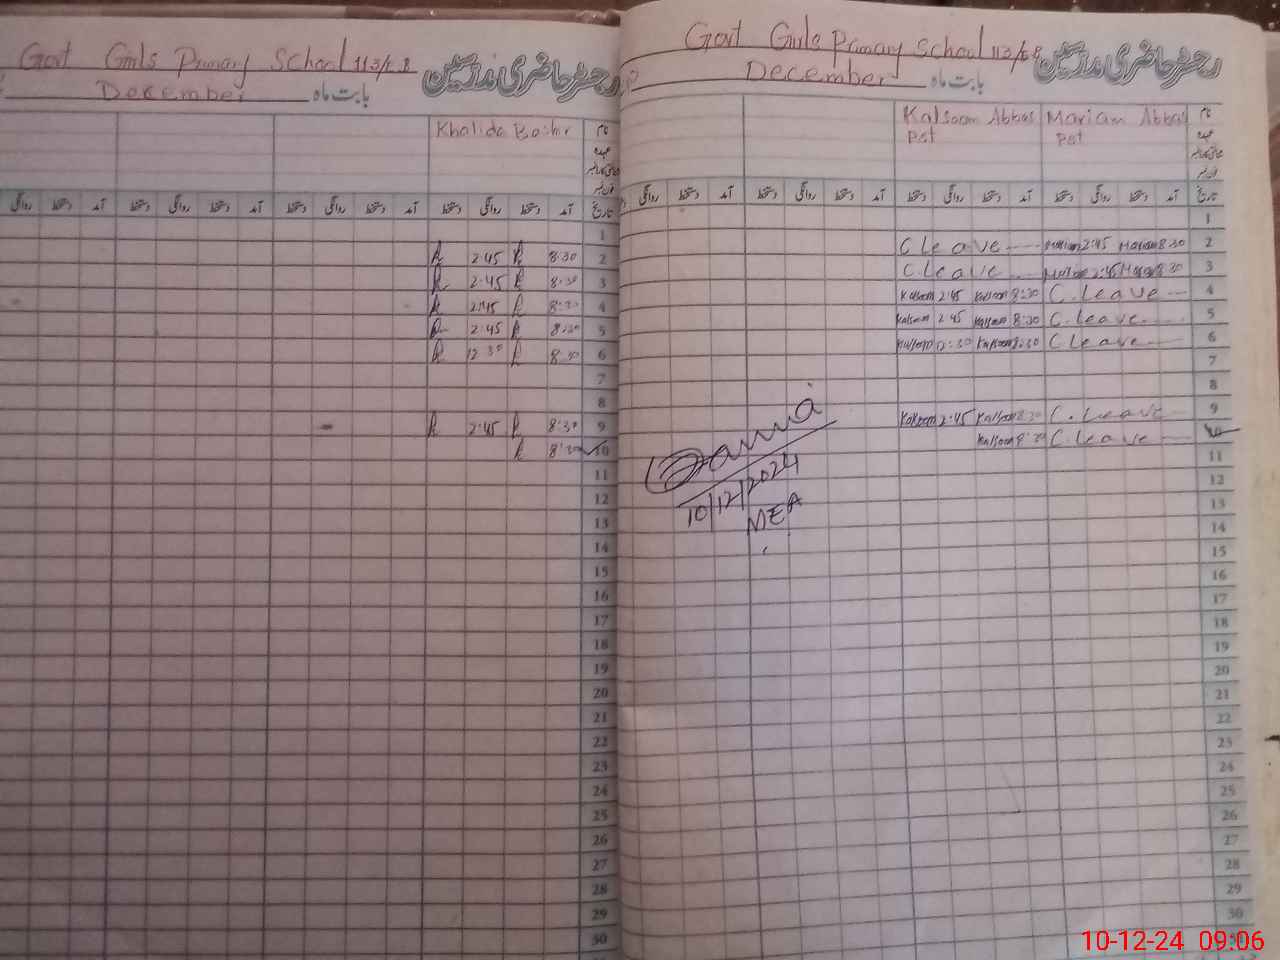 Govt Girls Primary School 113/E.B
رجسٹر حاضری مدرسین
بابت ماہ December
Khalida Bashir
نام
عہدہ
تاریخ آمد دستخط روانگی دستخط آمد دستخط روانگی دستخط آمد دستخط روانگی دستخط آمد دستخط روانگی
1
2 8:30 R 2:45 R
3 8:30 R 2:45 R
4 8:30 R 2:45 R
5 8:30 R 2:45 R
6 8:30 R 12:30 R
7
8
9 8:30 R 2:45 R
10 8:30 R
11
12
13
14
15
16
17
18
19
20
21
22
23
24
25
26
27
28
29
30
Govt Girls Primary School 113/E.B
رجسٹر حاضری مدرسین
بابت ماہ December
Kalsoom Abbas Mariam Abbas
Pst Pst
نام
عہدہ
تاریخ آمد دستخط روانگی دستخط آمد دستخط روانگی دستخط آمد دستخط روانگی دستخط آمد دستخط روانگی
1
C Leave Mariam 2:45 Mariam 8:30 2
C Leave Mariam 2:45 Mariam 8:30 3
Kalsoom 2:45 Kalsoom 8:30 C. Leave 4
Kalsoom 2:45 Kalsoom 8:30 C. Leave 5
Kalsoom 12:30 Kalsoom 8:30 C Leave 6
7
8
Kalsoom 2:45 Kalsoom 8:30 C. Leave 9
Kalsoom 8:30 C. Leave 10
11
12
13
14
15
16
17
18
19
20
21
22
23
24
25
26
27
28
29
30
10/12/2024
MEA
10-12-24 09:06